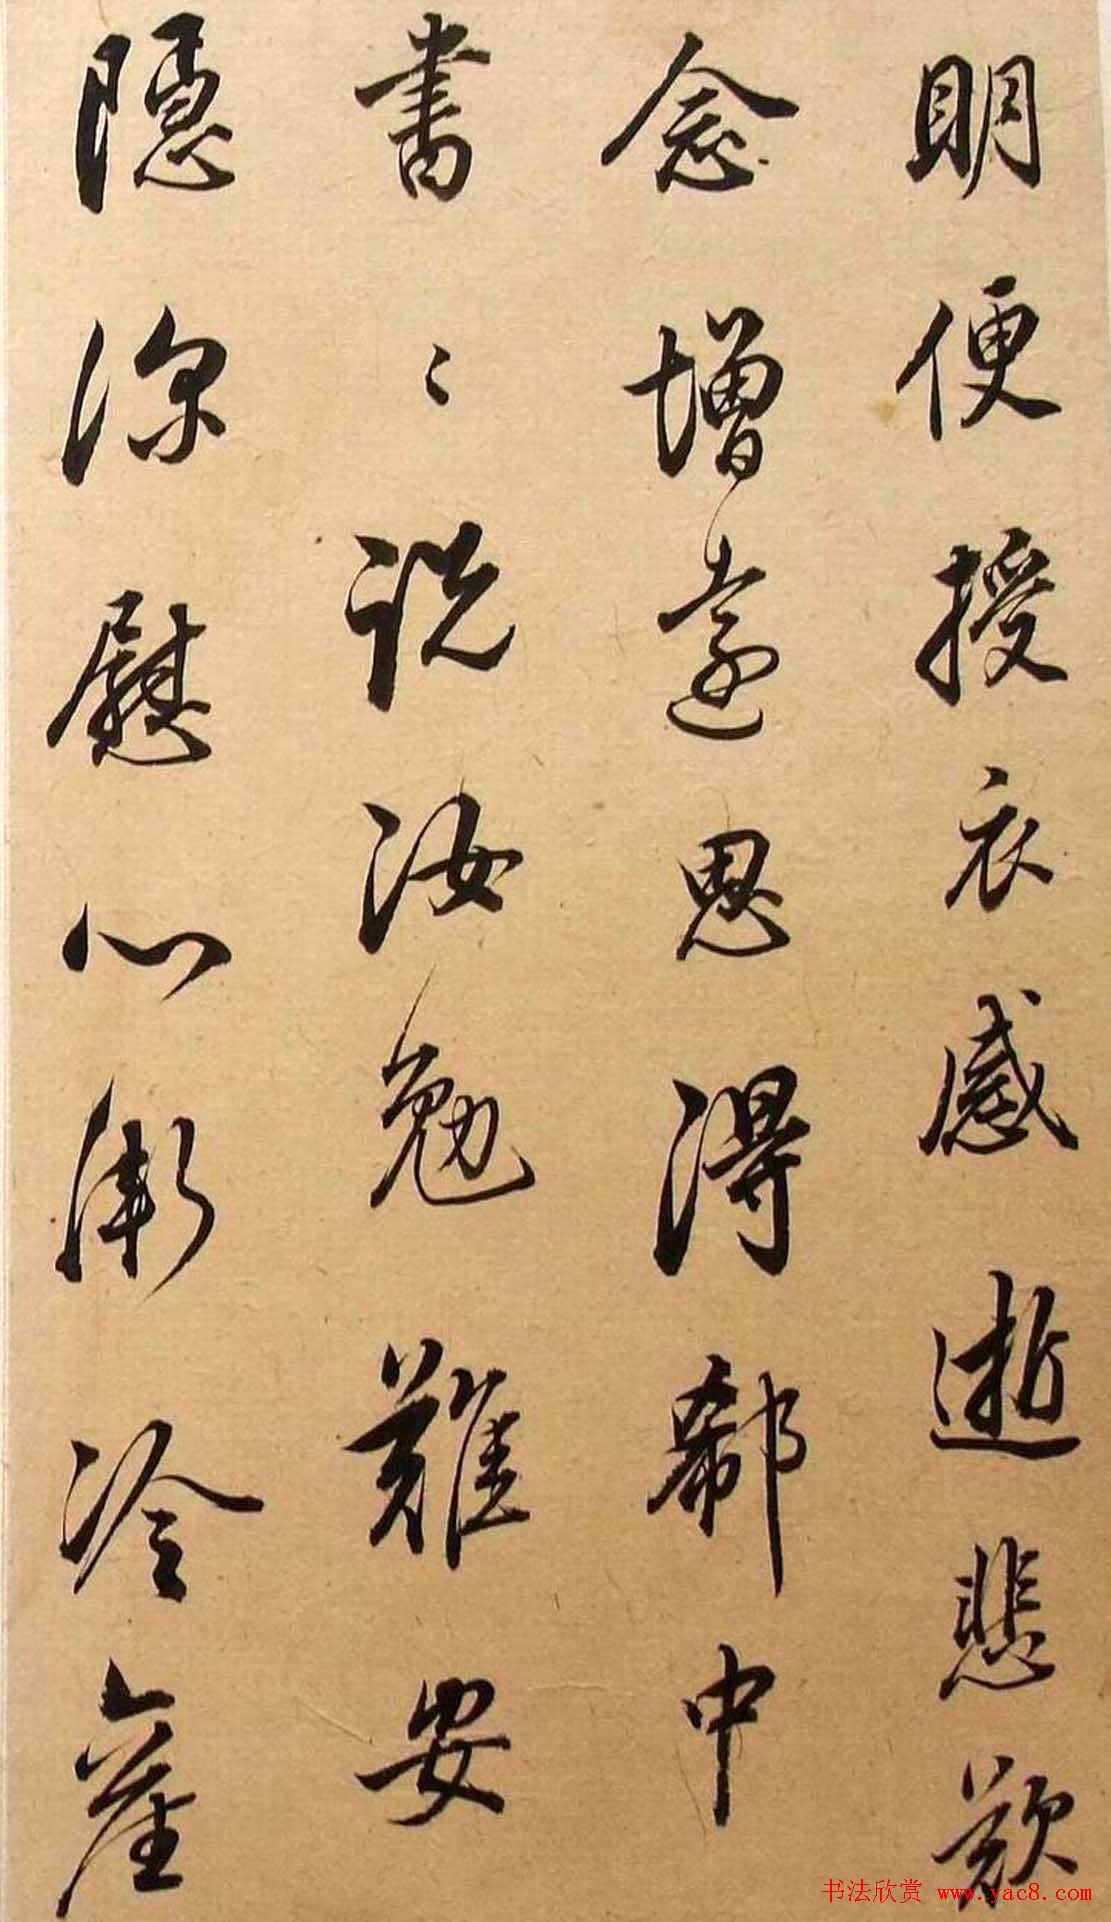 明便授衣感逝悲歎
念增遠思得郗中
書〻說汝勉難安
隱深慰心漸冷產
书法欣赏 www.yac8.com